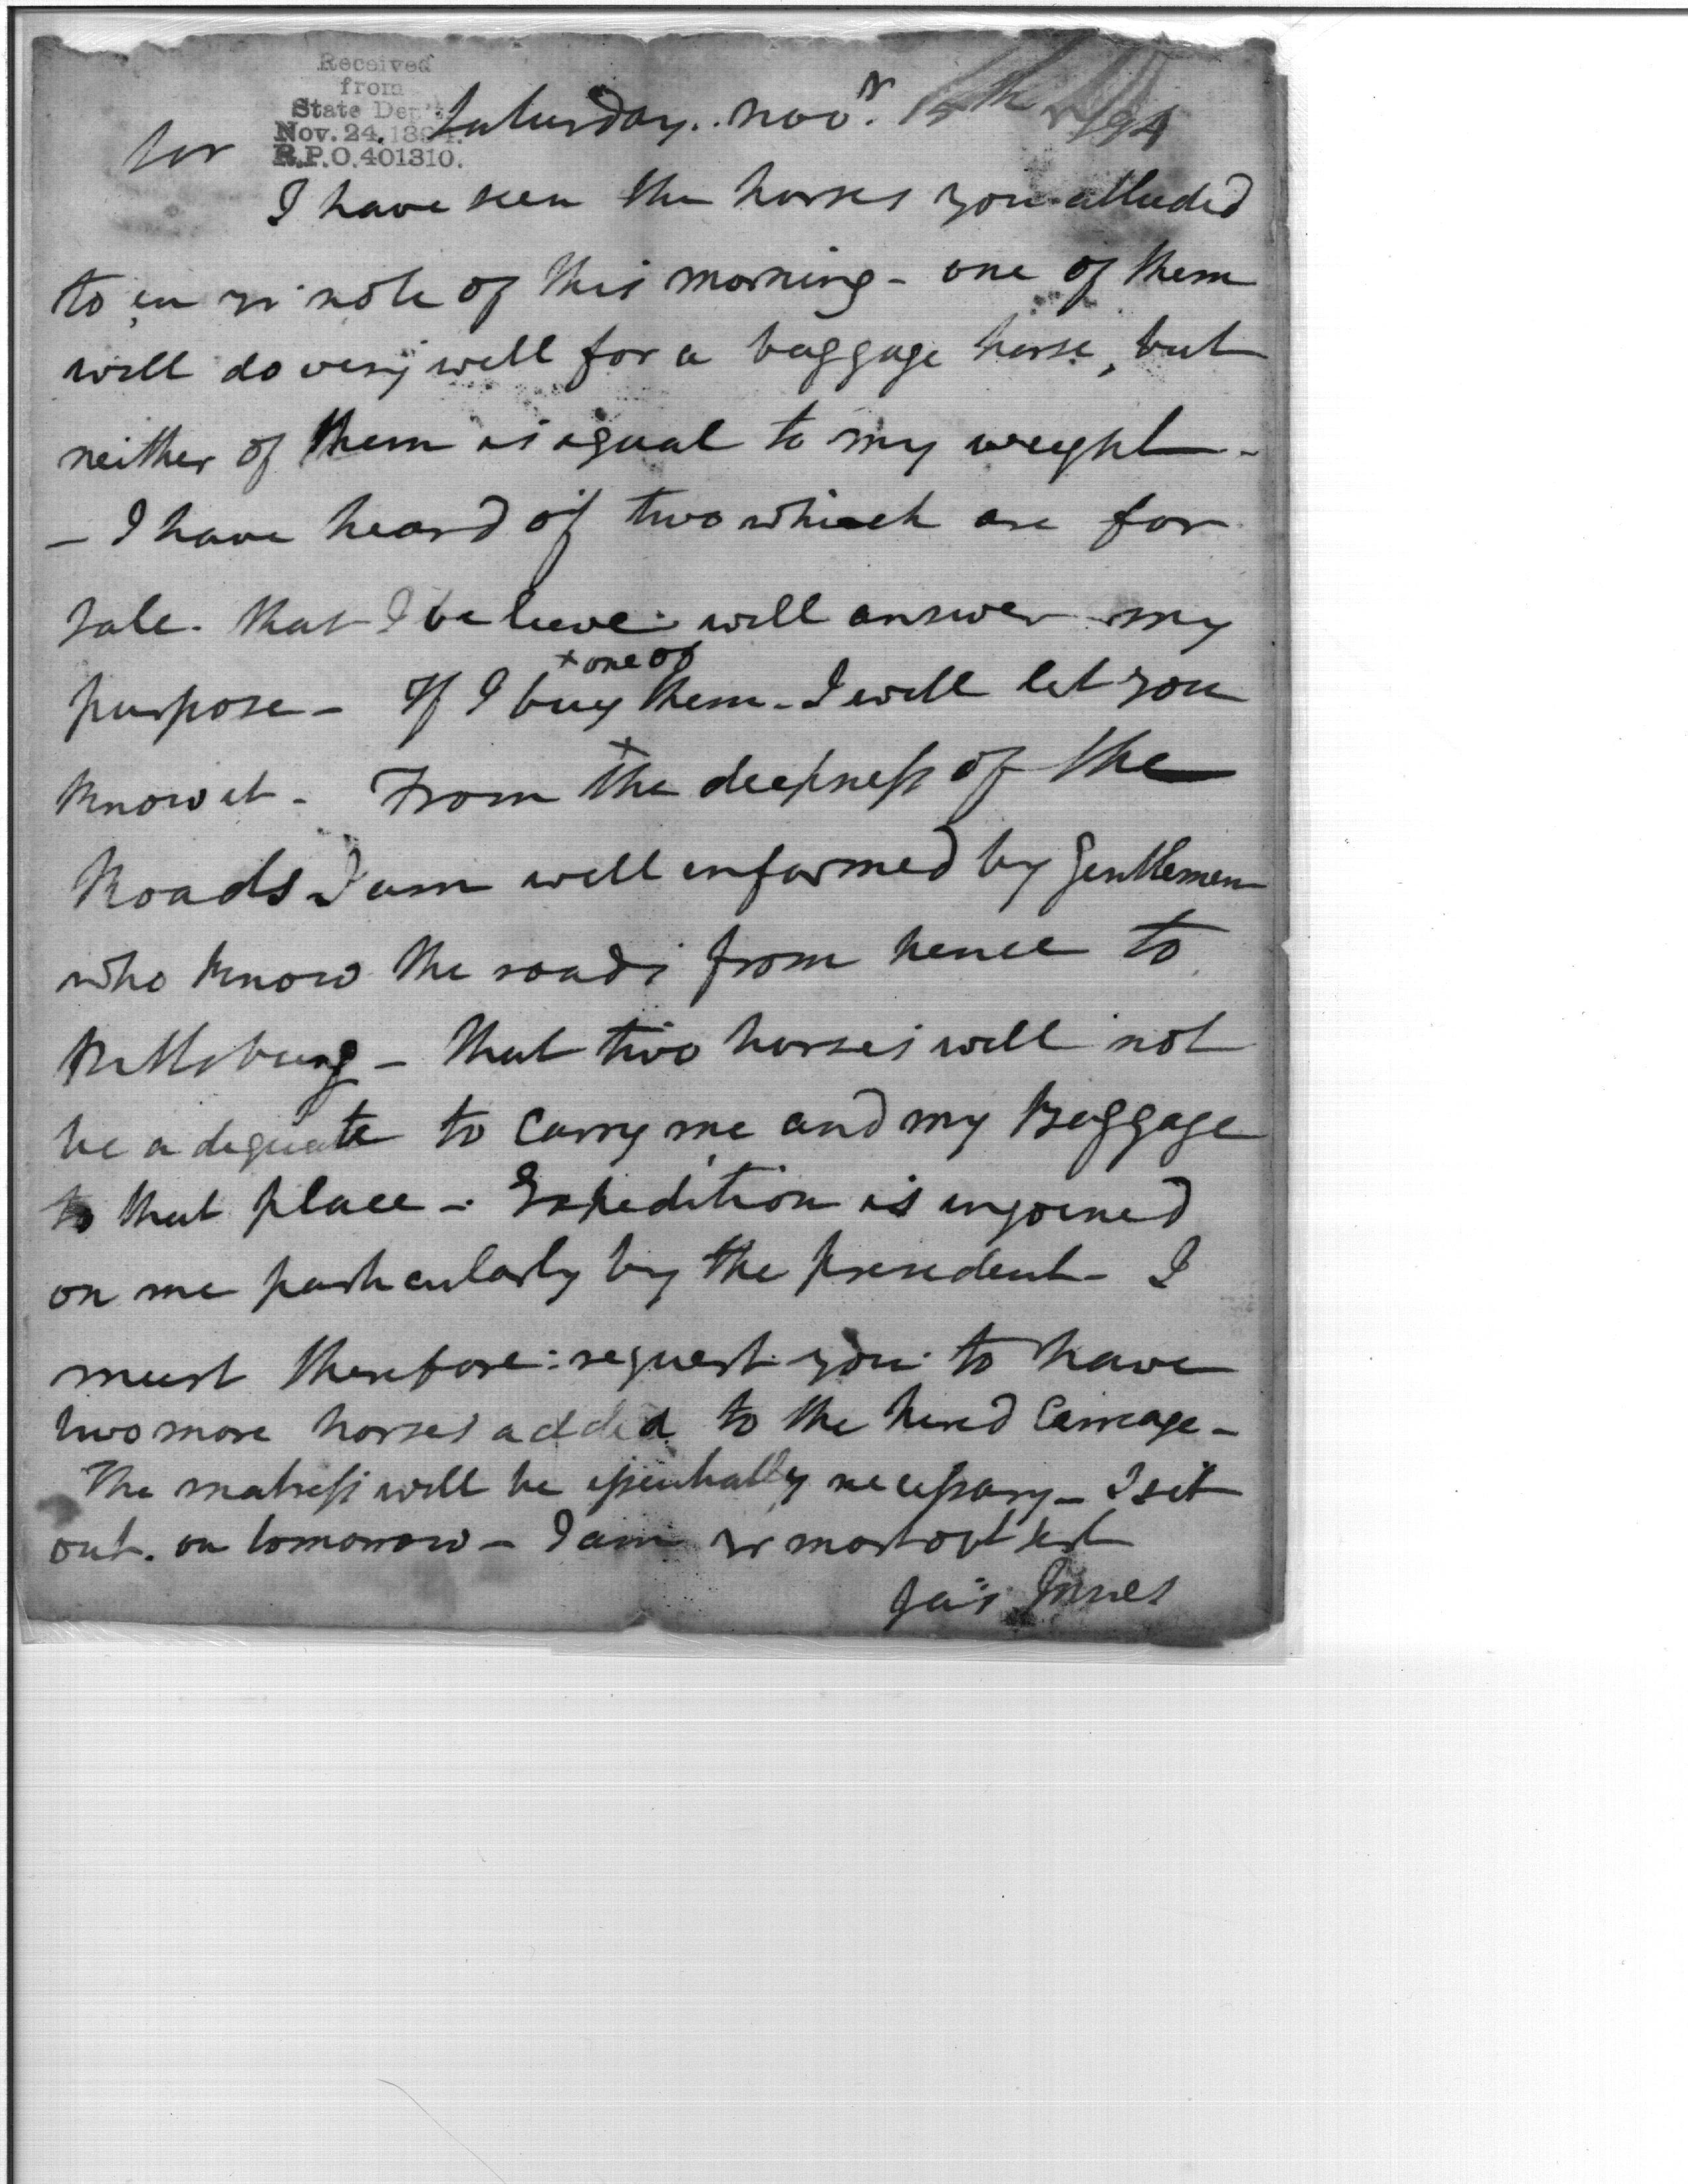 Received
from
State Dep't
Nov. 24. 1894.
R.P.O. 401310.
Saturday. Novr. 15th 1794
Sir
I have seen the horses you alluded
to in yr note of this morning - one of them
will do very well for a baggage horse, but
neither of them is equal to my weight -
- I have heard of two which are for
sale. that I believe will answer my
+ one of
purpose - If I buy them - I will let you
know it - From the deepness of the
Roads I am well informed by Gentlemen
who know the roads from hence to
Pittsburg - that two horses will not
be adequate to carry me and my Baggage
to that place - Expedition is injoined
on me particularly by the president - I
must therefore request you to have
two more horses added to the hired Carreage -
The matress will be essentially necessary - I sit
out. on tomorrow - I am yr most obt st
Jas Innes